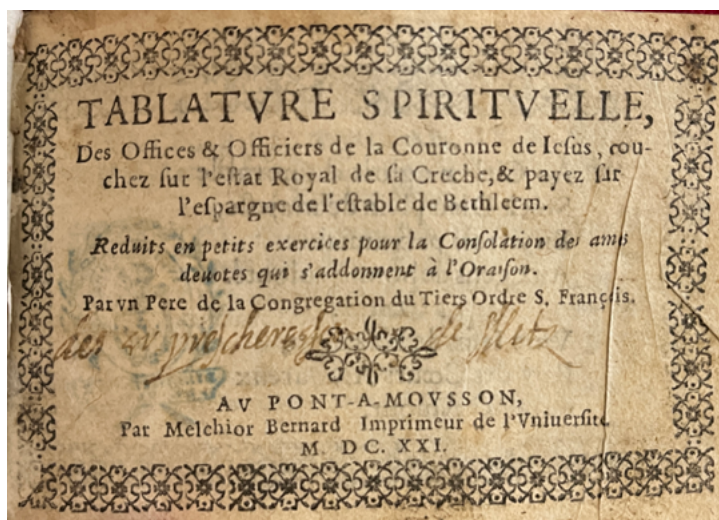 TABLATVRE SPIRITVELLE,
Des Offices & Officiers de la Couronne de Iesus, cou-
chez sur l'estat Royal de sa Creche, & payez sur
l'espargne de l'estable de Bethleem.
Reduits en petits exercices pour la Consolation des ames
deuotes qui s'addonnent à l'Oraison.
Par vn Pere de la Congregation du Tiers Ordre S. François.
des de Metz
AV PONT-A-MOVSSON,
Par Melchior Bernard Imprimeur de l'Vniuersité
M DC. XXI.